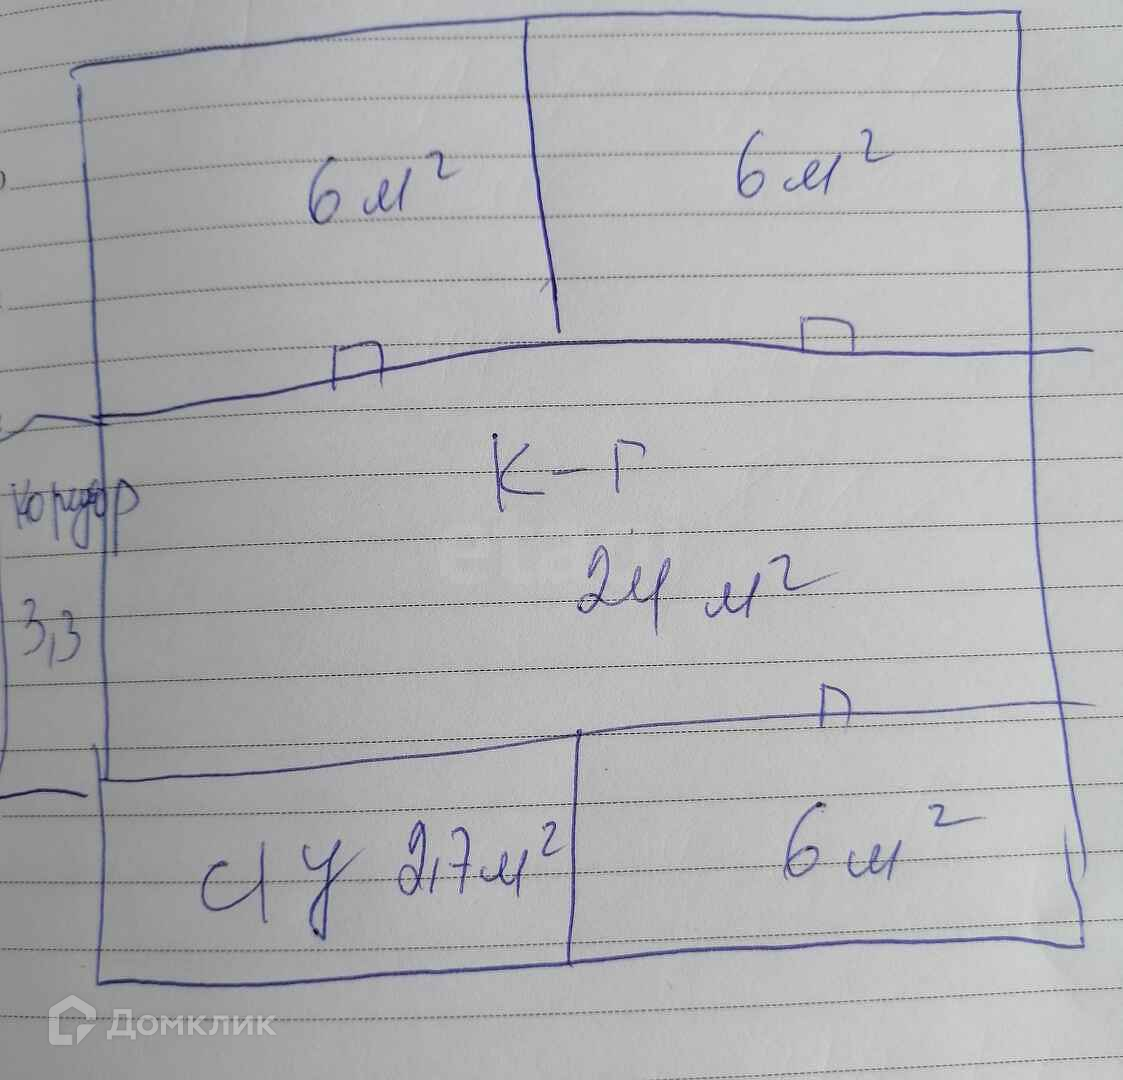 6 м²
6 м²
К-Г
24 м²
коридор
3,3
с/у 2,7м²
6 м²
Домклик